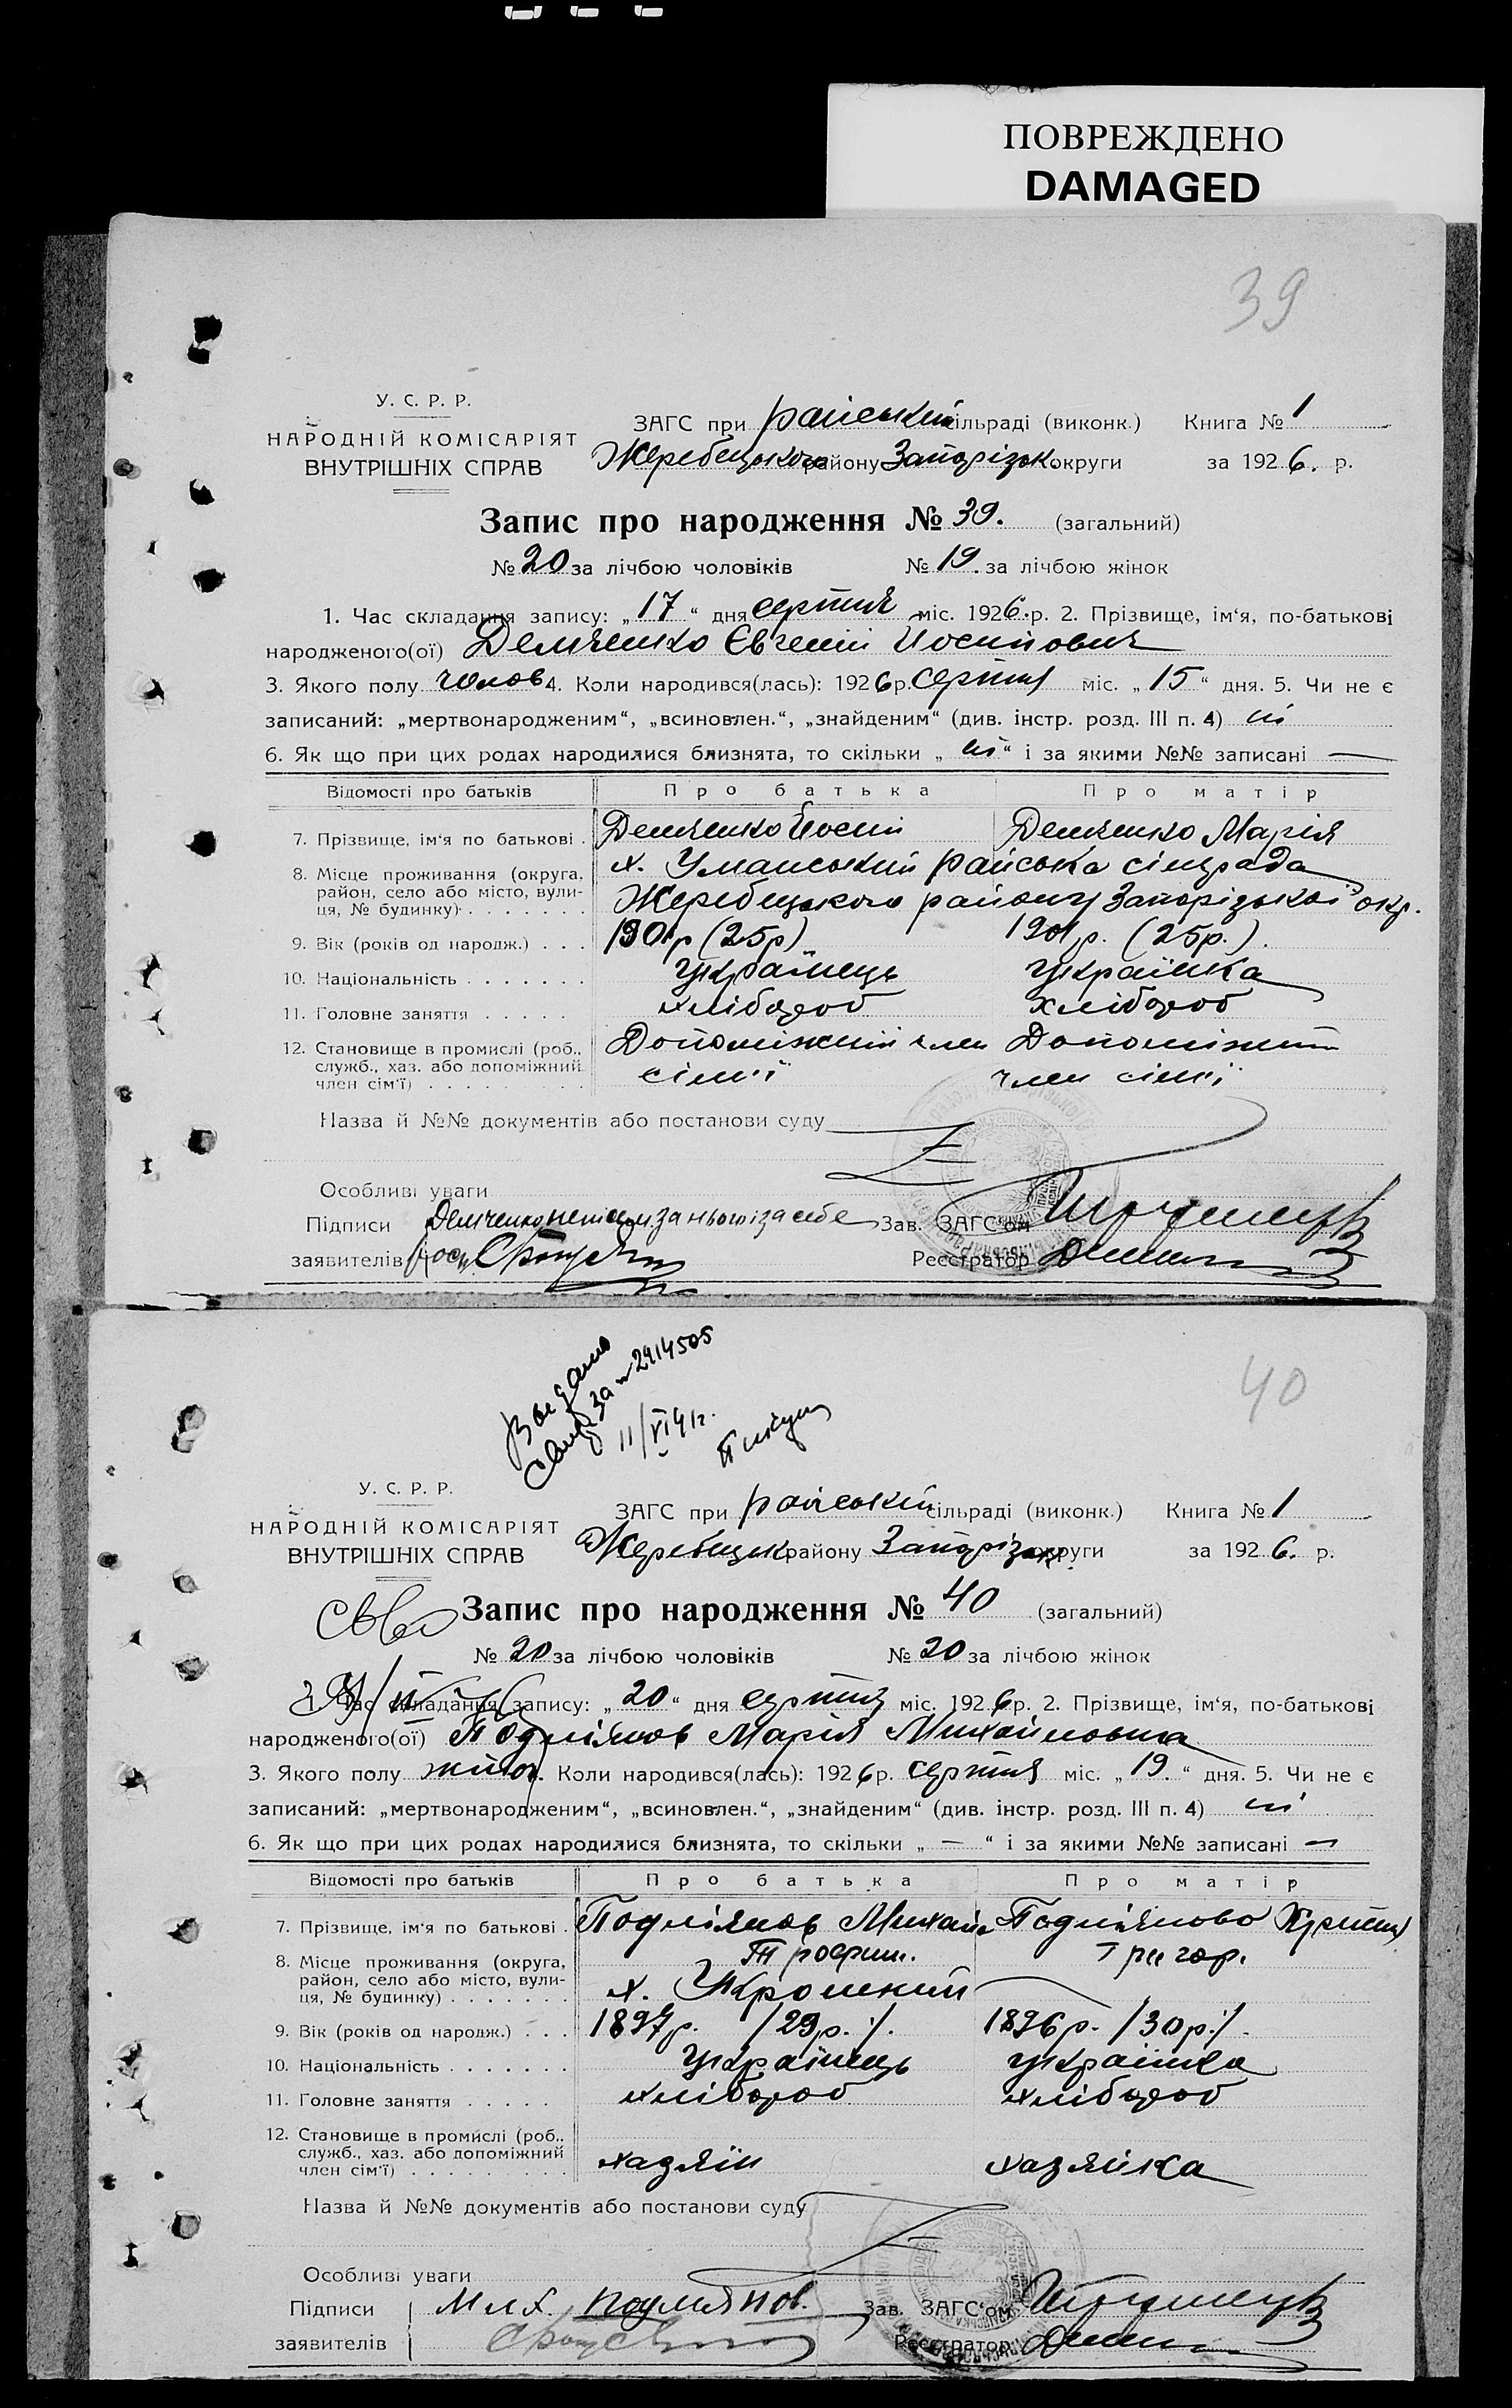 ПОВРЕЖДЕНО
DAMAGED
39
У. С. Р. Р.
НАРОДНІЙ КОМІСАРІЯТ
ВНУТРІШНІХ СПРАВ
ЗАГС при райській сільраді (виконк.) Книга № 1
Жеребецького району Запорізьк. округи за 1926. р.
Запис про народження № 39. (загальний)
№ 20 за лічбою чоловіків № 19. за лічбою жінок
1. Час складання запису: „17“ дня серпня міс. 1926.р. 2. Прізвище, ім‘я, по-батькові
народженого(ої) Демченко Євгеній Йосипович
3. Якого полу чолов 4. Коли народився(лась): 1926р. серпня міс. „15“ дня. 5. Чи не є
записаний: „мертвонародженим“, „всиновлен.“, „знайденим“ (див. інстр. розд. III п. 4) ні
6. Як що при цих родах народилися близнята, то скільки „ні“ і за якими №№ записані —
Відомості про батьків Про батька Про матір
7. Прізвище, ім‘я по батькові . Демченко Йосип Демченко Марія
8. Місце проживання (округа, район, село або місто, вулиця, № будинку) . . . . . . . х. Уманський райська сільрада
Жеребецького району Запорізької окр.
9. Вік (років од народж.) . . . 1901р (25р) 1901р. (25р.).
10. Національність . . . . . . . українець українка
11. Головне заняття . . . . . хлібороб хлібороб
12. Становище в промислі (роб., служб., хаз. або допоміжний член сім‘ї) . . . . . . . . . Допоміжний член Допоміжний
сім'ї член сім'ї
Назва й №№ документів або постанови суду
Особливі уваги
Підписи Демченко неписм за нього і за себе Зав. ЗАГС‘ом
заявителів Реєстратор
Выдано
свид за № 2914505
11/VI 41г.
40
У. С. Р. Р.
НАРОДНІЙ КОМІСАРІЯТ
ВНУТРІШНІХ СПРАВ
ЗАГС при райській сільраді (виконк.) Книга № 1
Жеребецьк району Запорізьк округи за 1926. р.
Запис про народження № 40 (загальний)
№ 20 за лічбою чоловіків № 20 за лічбою жінок
1. Час складання запису: „20“ дня серпня міс. 1926р. 2. Прізвище, ім‘я, по-батькові
народженого(ої) Подмянов Марія Михайловна
3. Якого полу жіноч. Коли народився(лась): 1926р. серпня міс. „19.“ дня. 5. Чи не є
записаний: „мертвонародженим“, „всиновлен.“, „знайденим“ (див. інстр. розд. III п. 4) ні
6. Як що при цих родах народилися близнята, то скільки „—“ і за якими №№ записані —
Відомості про батьків Про батька Про матір
7. Прізвище, ім‘я по батькові . Подмянов Михайл Подмянова Христя
Трофим. Григор.
8. Місце проживання (округа, район, село або місто, вулиця, № будинку) . . . . . . . х.
9. Вік (років од народж.) . . . 1897р. /29р./. 1896р. /30р./.
10. Національність . . . . . . . українець українка
11. Головне заняття . . . . . хлібороб хлібороб
12. Становище в промислі (роб., служб., хаз. або допоміжний член сім‘ї) . . . . . . . . . хазяїн хазяйка
Назва й №№ документів або постанови суду
Особливі уваги
Підписи Мих. Подмянов. Зав. ЗАГС‘ом
заявителів Реєстратор